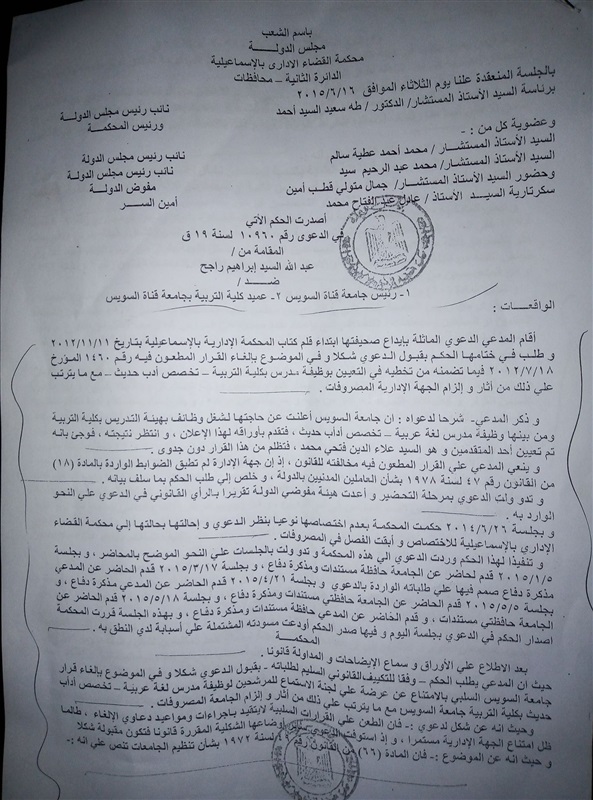 باسم الشعب
مجلس الدولـــــة
محكمة القضاء الإدارى بالإسماعيلية
الدائرة الثانية – محافظات
بالجلسة المنعقدة علنا يوم الثلاثاء الموافق ٢٠١٥/٦/١٦
برئاسة السيد الأستاذ المستشار/ الدكتور / طه سعيد السيد أحمد
نائب رئيس مجلس الدولـــة
ورئيس المحكمـــة
وعضوية كل من : -
السيد الأستاذ المستشـــار / محمد أحمد عطية سالم
نائب رئيس مجلس الدولة
السيد الأستاذ المستشار/ محمد عبد الرحيم سيد
نائب رئيس مجلس الدولة
وحضور السيد الأستاذ المستشـار/ جمال متولي قطب أمين
مفوض الدولــة
سكرتارية السيـــد الأستاذ / عادل عبد الفتاح محمد
أمين الســـر
أصدرت الحكم الآتي
في الدعوى رقم ١٠٩٦٠ لسنة ١٩ ق
المقامة من /
عبد الله السيد إبراهيم راجح
ضـــد /
١- رئيس جامعة قناة السويس ٢- عميد كلية التربية بجامعة قناة السويس
الواقعـــات :
أقام المدعي الدعوي الماثلة بإيداع صحيفتها ابتداء قلم كتاب المحكمة الإدارية بالإسماعيلية بتاريخ ٢٠١٢/١١/١١
و طلب في ختامها الحكم بقبول الدعوي شكلا و في الموضوع بإلغاء القرار المطعون فيه رقم ١٤٦٠ المؤرخ
٢٠١٢/٧/١٨ فيما تضمنه من تخطيه في التعيين بوظيفة مدرس بكلية التربية – تخصص أدب حديث – مع ما يترتب
علي ذلك من أثار و إلزام الجهة الإدارية المصروفات .
و ذكر المدعي- شرحا لدعواه : ان جامعة السويس أعلنت عن حاجتها لشغل وظائف بهيئة التدريس بكلية التربية
ومن بينها وظيفة مدرس لغة عربية – تخصص أداب حديث ، فتقدم بأوراقه لهذا الإعلان ، و انتظر نتيجته ، فوجئ بانه
تم تعيين أحد المتقدمين و هو السيد علاء الدين فتحي محمد ، فتظلم من هذا القرار دون جدوى .
و ينعي المدعي علي القرار المطعون فيه مخالفته للقانون ، إذ إن جهة الإدارة لم تطبق الضوابط الواردة بالمادة (١٨)
من القانون رقم ٤٧ لسنة ١٩٧٨ بشأن العاملين المدنيين بالدولة ، و خلص إلي طلب الحكم بما سلف بيانه .
و تدو ولت الدعوي بمرحلة التحضير و أعدت هيئة مفوضي الدولة تقريرا بالرأي القانوني في الدعوي علي النحو
الوارد به .
و بجلسة ٢٠١٤/٦/٢٦ حكمت المحكمة بعدم اختصاصها نوعيا بنظر الدعوي و إحالتها بحالتها إلي محكمة القضاء
الإداري بالإسماعيلية للاختصاص و أبقت الفصل في المصروفات .
و تنفيذا لهذا الحكم وردت الدعوي الي هذه المحكمة و تدو ولت بالجلسات علي النحو الموضح بالمحاضر ، و بجلسة
٢٠١٥/١/٥ قدم لحاضر عن الجامعة حافظة مستندات ومذكرة دفاع ، و بجلسة ٢٠١٥/٣/١٧ قدم الحاضر عن المدعي
مذكرة دفاع صمم فيها علي طلباته الواردة بالدعوي و بجلسة ٢٠١٥/٤/٢١ قدم الحاضر عن المدعي مذكرة دفاع ، و
بجلسة ٢٠١٥/٥/٥ قدم الحاضر عن الجامعة حافظتي مستندات ومذكرة دفاع ، و بجلسة ٢٠١٥/٥/١٨ قدم الحاضر عن
الجامعة حافظتي مستندات ، و قدم الحاضر عن المدعي حافظة مستندات و مذكرة دفاع ، و بهذه الجلسة قررت المحكمة
اصدار الحكم في الدعوي بجلسة اليوم و فيها صدر الحكم أودعت مسودته المشتملة علي أسبابة لدي النطق به .
المحكمـــة
بعد الاطلاع علي الأوراق و سماع الإيضاحات و المداولة قانونا .
حيث ان المدعي يطلب الحكم – وفقا للتكييف القانوني السليم لطلباته - بقبول الدعوي شكلا و في الموضوع بإلغاء قرار
جامعة السويس السلبي بالامتناع عن عرضة علي لجنة الاستماع للمرشحين لوظيفة مدرس لغة عربية – تخصص أداب
حديث بكلية التربية جامعة السويس مع ما يترتب علي ذلك من أثار و إلزام الجامعة المصروفات .
وحيث إنه عن شكل لدعوي :- فان الطعن علي القرارات السلبية لايتقيد باجراءات ومواعيد دعاوي الإلغاء ، طالما
ظل امتناع الجهة الإدارية مستمرا ، و إذ استوفت الدعوي أوضاعها الشكلية المقررة قانونا فتكون مقبولة شكلا
و حيث انه عن الموضوع :- فان المادة (٦٦) من القانون رقم ٤٩ لسنة ١٩٧٢ بشأن تنظيم الجامعات تنص علي انه :-